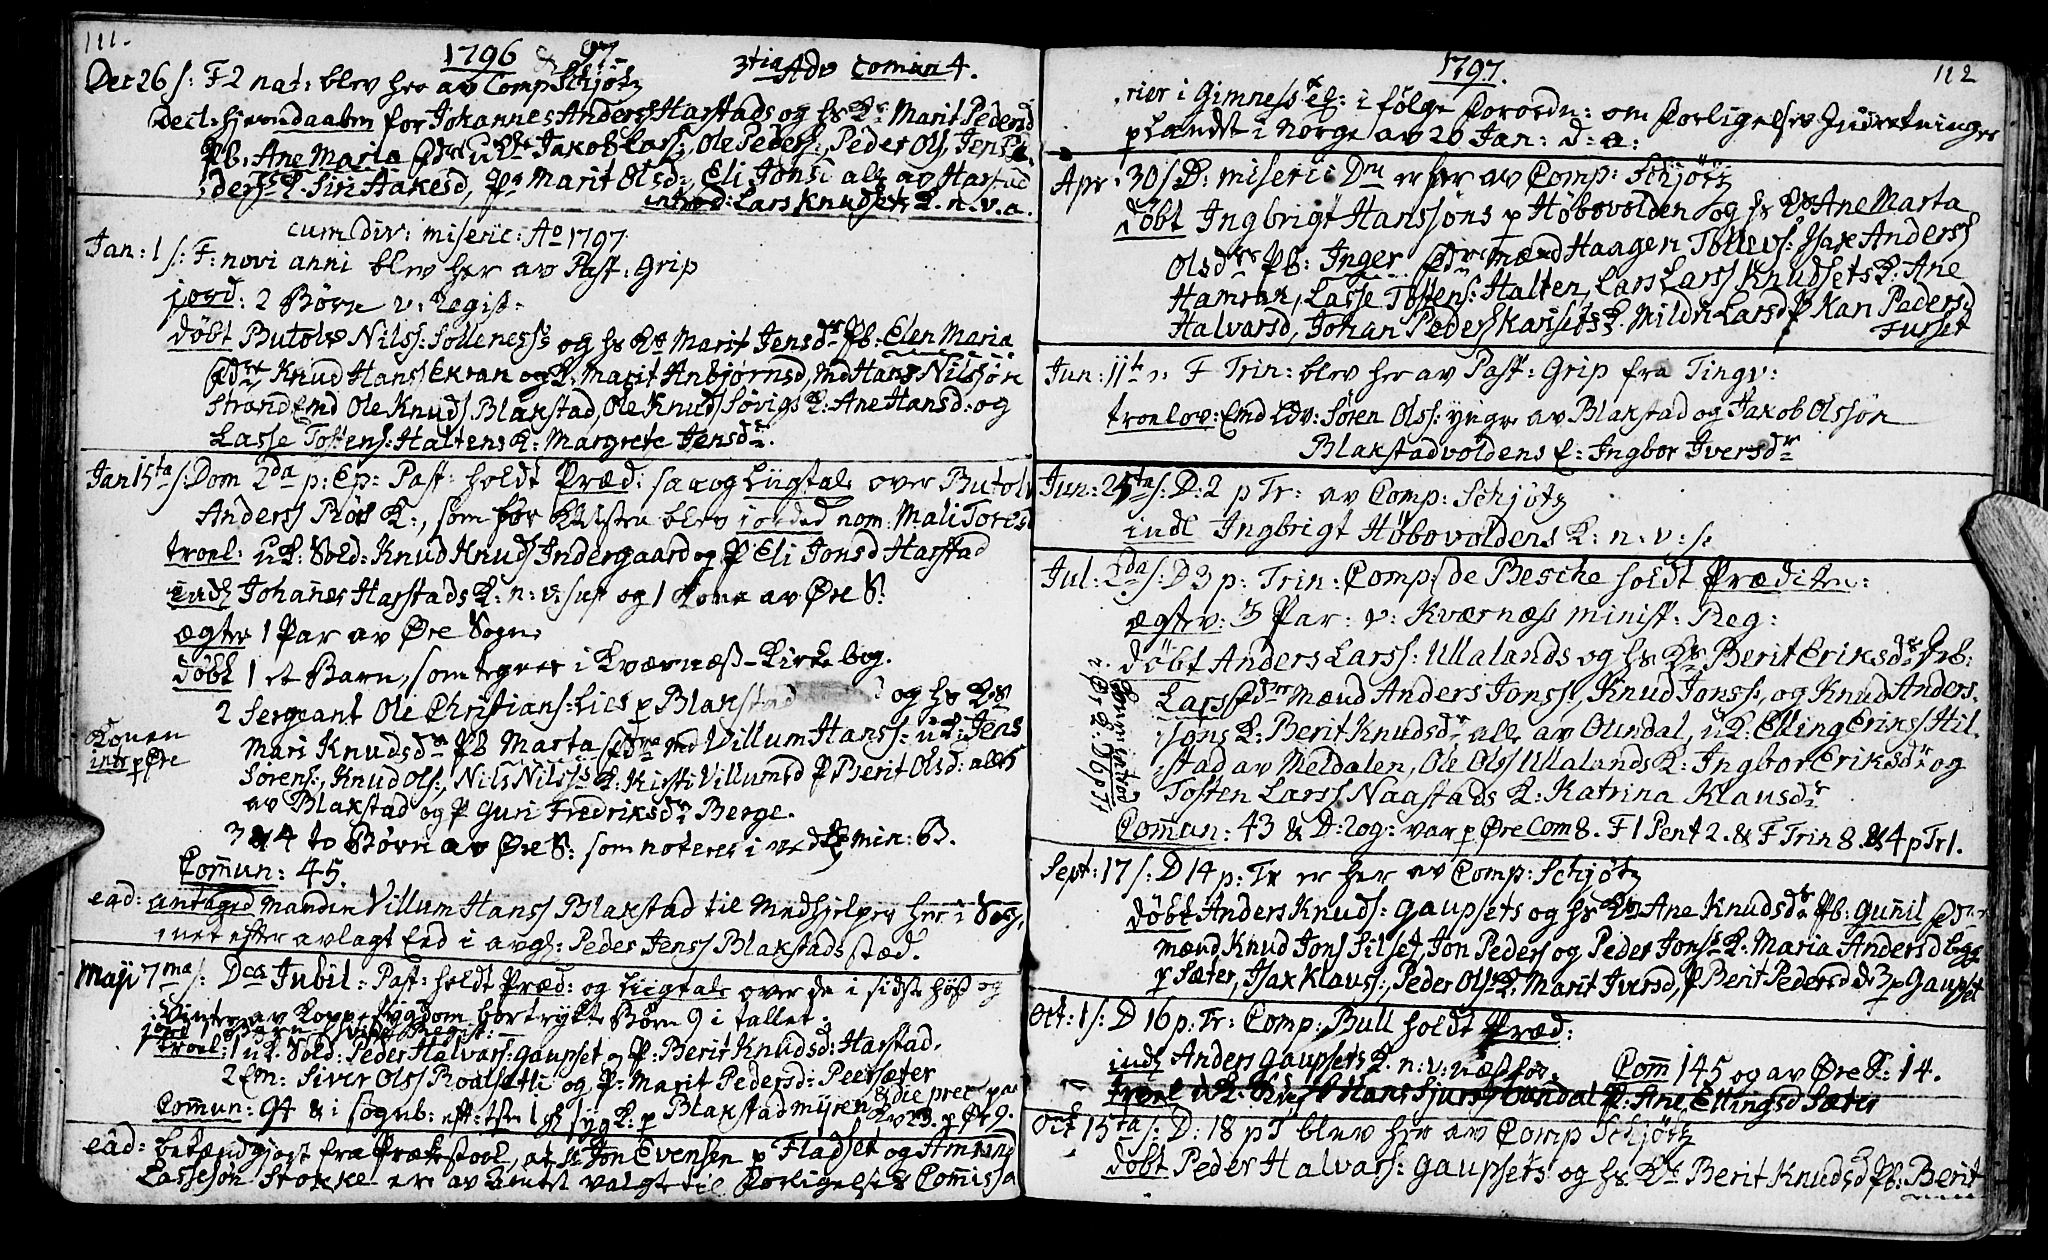 111.
1796 & 97.
3tia Adv comun 4.
Dec 26 s: F 2 nat: blev her av Comp Schjøtz
Decl: hjemdaaben for Johannes Anders Harstads og hs K: Marit Pedersd
Pb. Ane Maria Fdre uK: Jakob Lars:, Ole Peders:, Peder Ols, Jens Pe
ders: K. Siri Hakesd, P: Marit Olsd:, Eli Jonsd alle av Harstad
introd: Lars Knudsets K. n. v. a.
cum div: miseric: Ao 1797
Jan: 1 s: F: novi anni blev her av Past: Grip
jord: 2 Børn v: Regist.
døbt Butolv Nilss: Solleness og hs K: Marit Jensdr Pb: Elen Maria
Fdre Knud Hanss Ekran og K: Marit Anbjørnsd, Md Hans Nilssøn
Strand Emd Ole Knuds Blakstad, Ole Knuds Søvigs K: Ane Hansd: og
Lasse Tostens: Haltens K: Margrete Jensdr.
Jan 15ta s: Dom 2da p: Ep: Past: holdt Præd: sa og Liigtale over Butolv
Anders Røes K:, som før blev jorded nom: Mali Tores
troel: uK: Sold: Knud Knuds Indergaard og P Eli Jonsd Harstad
indl Johanes Harstads K: n: v: sup og 1 Kone av Øre S:
ægtev 1 Par av Øre Sogn.
døbt 1 et Barn, som tegnes i Kværnæss-Kirkebog.
2 Sergeant Ole Christians: Lies p Blakstad og hs K:
Konen
intr p Øre
Mari Knudsdr Pb Marta Fdre Md Villum Hanss: uK: Jens
Sørens:, Knud Ols:, Nils Nilss K: Kirsti Villumsd P Berit Olsd: alle
av Blakstad og P Guri Fredriksdr Berge.
3 & 4 to Børn av Øre S: som noteres i min: B.
Comun: 45.
ead: antaged Manden Villum Hanss Blakstad til Medhjelper her i Sog,
net efter avlagt Eed i avg: Peder Jenss Blakstads stæd.
Maji 7ma s: Dca Jubil: Past: holdt Præd: og Liigtale over de i sidste høst og
Vinter av Koppesygdom bortrykte Børn 9 i tallet:
jord 1 Barn
troel: 1 uK: Sold: Peder Halvars: Gaupset og P: Berit Knudsd: Harstad.
2 Em: Siver Olss Boalsetli og P: Marit Pedersd: Peersæter
Comun: 94 & i sognb: eft: 1 syg K: p Blakstadmyren & die prec pa
p Øre 9.
ead: bekændtgjort fra Prækestoel, at Jon Evensen p Fladset og Amund
Lassesøn Stokke ere av Amtet valgt til Forligelses Comissa
1797.
112
rier i Gimness i følge Forordn: om Forligelses Indretninger
p Landet i Norge av 20 Jan: d: a:
Apr. 30 s D: miseric: Dni er her av Comp: Schjøtz
døbt Ingbrigt Hanssøns p Høbovolden og hs K Ane Marta
Olsdrs Pb: Inger Fdre Mænd Haagen Tollevs: Isak Anderss
Hamran, Lasse Tostens: Halten, Lars Larss Knudsets K: Ane
Halvarsd, Johan Peders Karisets K. Mildri Larsd P Kari Pedersd
Furset
Jun: 11te F Trin: blev her av Past: Grip fra Tingv:
troelov: Emd Edv: Søren Olss: yngre av Blakstad og Jakob Olssøn
Blakstadvoldens E: Ingbor Iversdr
Jun: 25ta s: D: 2 p Tr: av Comp: Schjøtz
indl Ingbrigt Høbovoldens K: n: v: s:
Jul: 2da s: D 3 p: Trin: Comp: de Besche holdt Prædiken:
ægtev: 3 Par: v: Kværnæss minist: Reg:
døbt Anders Larss: Ulalands og hs K Berit Eriksdrs Pb:
Lars Fdre Mænd Anders Jonss, Knud Jonss, og Knud Anders.
søns K: Berit Knudsdr alle av Oundal, uK: Elling Eriks Hil
stad av Meldalen, Ole Olss Ulalands K: Ingbor Eriksdr og
Tosten Larss Naastads K: Katrina Klausdr
Comun: 43 & D: 2 og: var p Øre Com 8. F 1 Pent 2. & F Trin 8 & 4 p Tr 1.
Sept: 17 s: D 14 p: Tr er her av Comp: Schjøtz
døbt Anders Knuds: Gaupsets og hs K Ane Knudsdr Pb: Gunil Fdre
mænd Knud Jons Silset, Jon Peders og Peder Jonss K: Maria Andersd begge
p Sæter, Isak Klauss:, Peder Ols K: Marit Iversd, P Berit Pedersd de 3 p Gaupset
Oct: 1 s: D 16 p: Tr: Comp: Bull holdt Præd:
indl Anders Gaupsets K. n: v: næst før. Com 145 og av Øre K: 14.
troel uK: Hans Sjurss Oundal P: Ane Ellingsd Sæter
Oct 15ta s: D: 18 p T blev her av Comp Schjøtz
døbt Peder Halvars: Gaupsets og hs K: Berit Knudsd Pb: Berit